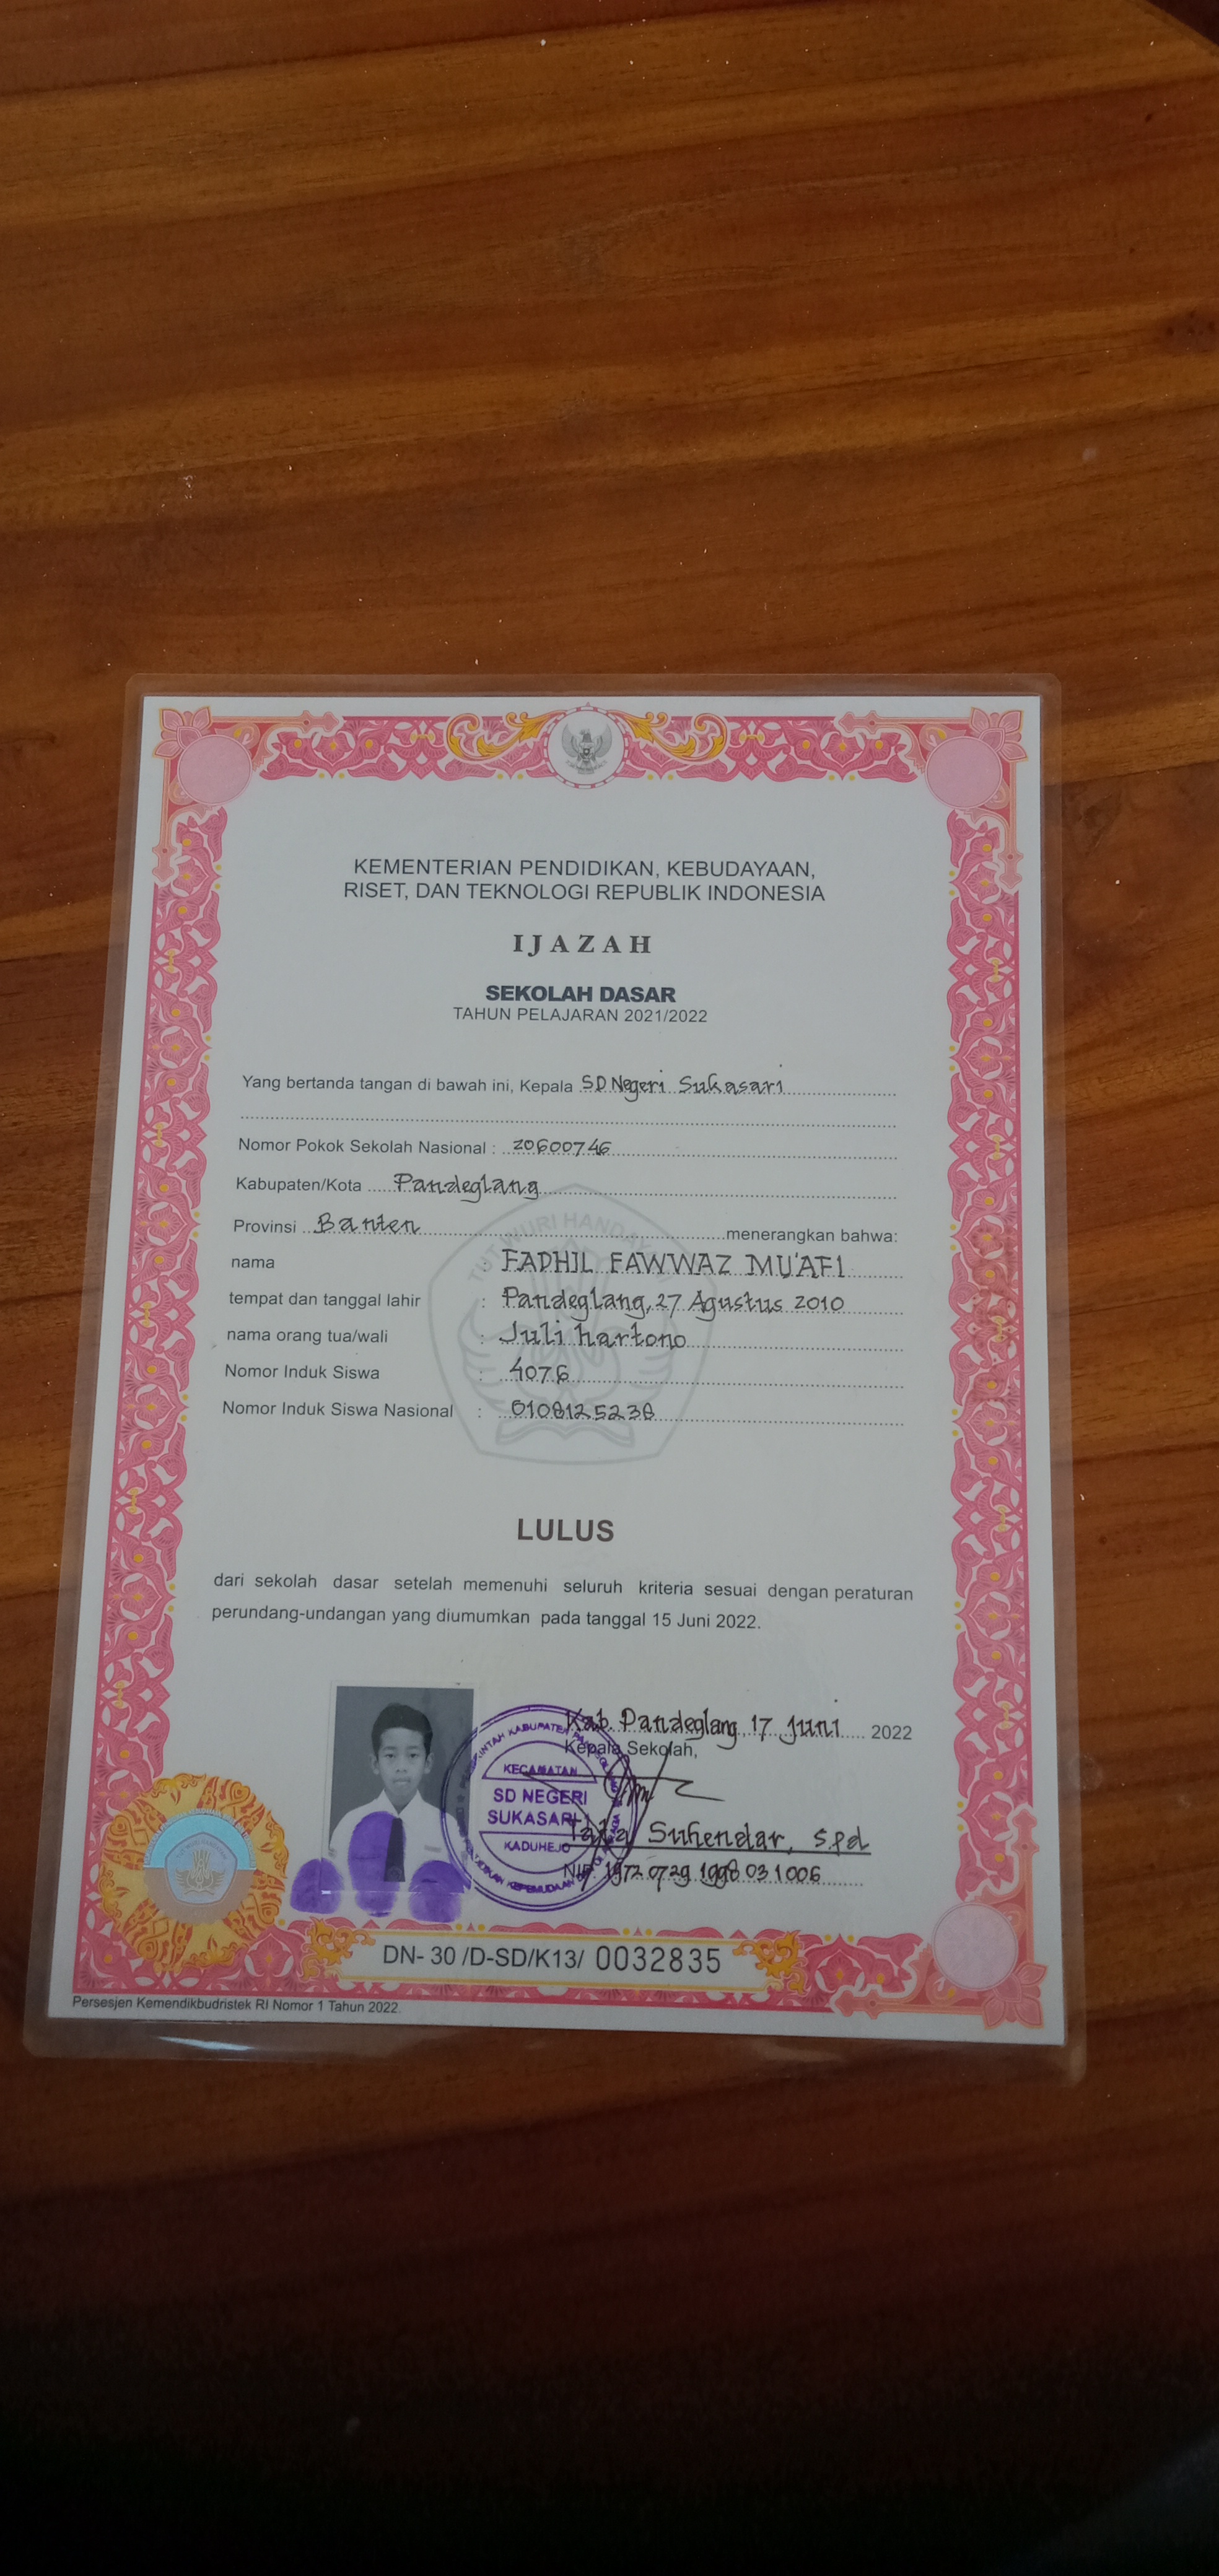 KEMENTERIAN PENDIDIKAN, KEBUDAYAAN,
RISET, DAN TEKNOLOGI REPUBLIK INDONESIA
IJAZAH
SEKOLAH DASAR
TAHUN PELAJARAN 2021/2022
Yang bertanda tangan di bawah ini, Kepala SD Negeri Sukasari
Nomor Pokok Sekolah Nasional : 20600746
Kabupaten/Kota Pandeglang
Provinsi Banten menerangkan bahwa:
nama : FADHIL FAWWAZ MU'AFI
tempat dan tanggal lahir : Pandeglang, 27 Agustus 2010
nama orang tua/wali : Juli hartono
Nomor Induk Siswa : 4076
Nomor Induk Siswa Nasional : 0108125238
TUT WURI HANDAYANI
LULUS
dari sekolah dasar setelah memenuhi seluruh kriteria sesuai dengan peraturan
perundang-undangan yang diumumkan pada tanggal 15 Juni 2022.
Kab. Pandeglang, 17 Juni 2022
Kepala Sekolah,
KECAMATAN
SD NEGERI
SUKASARI
KADUHEJO
Suhendar, S.Pd
NIP. 19720729 199803 1006
DN- 30 /D-SD/K13/ 0032835
Persesjen Kemendikbudristek RI Nomor 1 Tahun 2022.